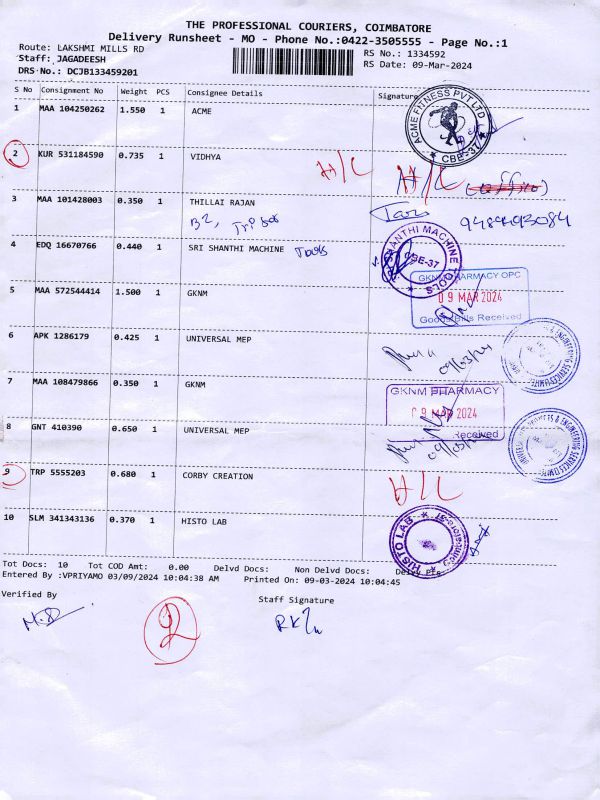 THE PROFESSIONAL COURIERS, COIMBATORE
Delivery Runsheet - MO - Phone No.:0422-3505555 - Page No.:1
Route: LAKSHMI MILLS RD RS No.: 1334592
Staff: JAGADEESH RS Date: 09-Mar-2024
DRS No.: DCJB133459201
S No Consignment No Weight PCS Consignee Details Signature
1 MAA 104250262 1.550 1 ACME
ACME FITNESS PVT LTD
★ CBE-37 ★
2 KUR 531184590 0.735 1 VIDHYA H/L H/L
3 MAA 101428003 0.350 1 THILLAI RAJAN
B2,
4 EDQ 16670766 0.440 1 SRI SHANTHI MACHINE Tools
SHANTHI MACHINE TOOLS
CBE-37
5 MAA 572544414 1.500 1 GKNM
GKNM PHARMACY OPC
09 MAR 2024
Goods/Bills Received
6 APK 1286179 0.425 1 UNIVERSAL MEP
09/03/24
7 MAA 108479866 0.350 1 GKNM
GKNM PHARMACY
09 MAR 2024
Received
8 GNT 410390 0.650 1 UNIVERSAL MEP
UNIVERSAL MEP PROJECTS & ENGINEERING SERVICES LIMITED
9 TRP 5555203 0.680 1 CORBY CREATION H/L
10 SLM 341343136 0.370 1 HISTO LAB
HISTO LAB
Tot Docs: 10 Tot COD Amt: 0.00 Delvd Docs: Non Delvd Docs:
Entered By :VPRIYAMO 03/09/2024 10:04:38 AM Printed On: 09-03-2024 10:04:45
Verified By Staff Signature
2